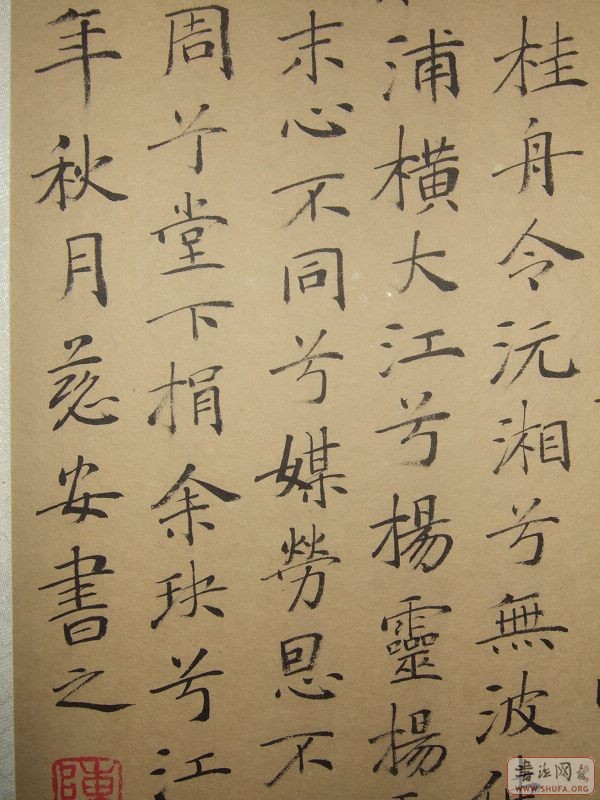 桂舟令沅湘兮無波
浦橫大江兮楊靈楊
末心不同兮媒勞恩不
周兮堂下捐余玦兮江
年秋月慈安書之
陳
書法网
WWW.SHUFA.ORG